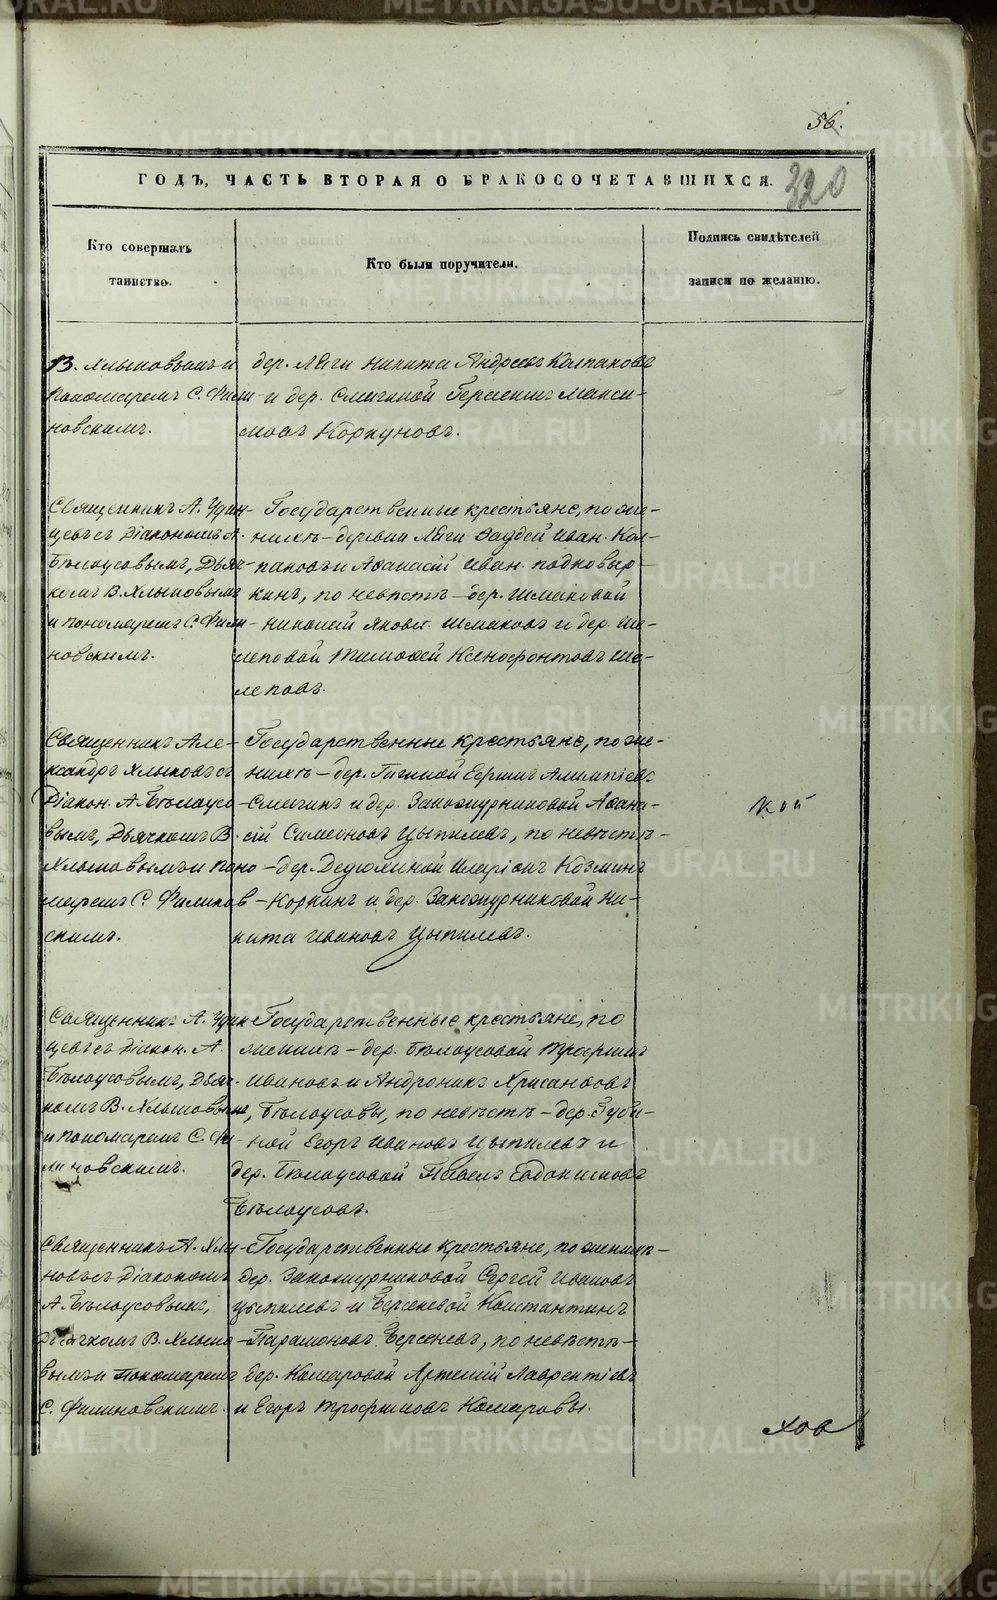 56.
320
ГОДЪ, ЧАСТЬ ВТОРАЯ О БРАКОСОЧЕТАВШИХСЯ.
Кто совершалъ
таинство.
Кто были поручители.
Подпись свидѣтелей
записи по желанію.
В. Хлыновымъ и
Пономаремъ С. Фили-
новскимъ.
дер. Ляги Никита Андреевъ Колпаковъ
и дер. Смыгиной Герасимъ Макси-
мовъ Коркуновъ.
Священникъ А. Удин-
цевъ съ Діакономъ А.
Бѣлоусовымъ, Дьяч-
комъ В. Хлыновымъ
и пономаремъ С. Фили-
новскимъ.
Государственные крестьяне, по же-
нихѣ – деревни Ляги Фаддей Иван. Кол-
паковъ и Афанасій Иван. Подковыр-
кинъ, по невѣстѣ – дер. Шмаковой
Николай Яковл. Шмаковъ и дер. Ше-
леповой Тимофей Ксенофонтовъ Ше-
леповъ.
Священникъ Але-
ксандръ Хлыновъ съ
Діакон. А. Бѣлоусо-
вымъ, Дьячкомъ В.
Хлыновымъ и Поно-
маремъ С. Филинов-
скимъ.
Государственные крестьяне, по же-
нихѣ – дер. Гигиной Ефимъ Алимпіевъ
Смыгинъ и дер. Закожурниковой Афана-
сій Симеоновъ Цыпилевъ, по невѣстѣ –
дер. Дедюхиной Иларіонъ Козминъ
Коркинъ и дер. Закожурниковой Ни-
кита Ивановъ Цыпилевъ.
кой
Священникъ А. Удин-
цевъ съ Діакон. А.
Бѣлоусовымъ, Дьяч-
комъ В. Хлыновымъ
и пономаремъ С. Фи-
линовскимъ.
Государственные крестьяне, по
женихѣ – дер. Бѣлоусовой Трофимъ
Ивановъ и Андроникъ Хрисанфовъ
Бѣлоусовы, по невѣстѣ – дер. Губи-
ной Егоръ Ивановъ Цыпилевъ и
дер. Бѣлоусовой Павелъ Евдокимовъ
Бѣлоусовъ.
Священникъ А. Хлы-
новъ съ Діакономъ
А. Бѣлоусовымъ,
Дьячкомъ В. Хлыно-
вымъ и Пономаремъ
С. Филиновскимъ.
Государственные крестьяне, по женихѣ –
дер. Закожурниковой Сергей Ивановъ
Цыпилевъ и Берсеневой Константинъ
Парамоновъ Берсеневъ, по невѣстѣ –
дер. Комаровой Артемій Лаврентіевъ
и Егоръ Трофимовъ Комаровы.
хов
METRIKI.GASO-URAL.RU